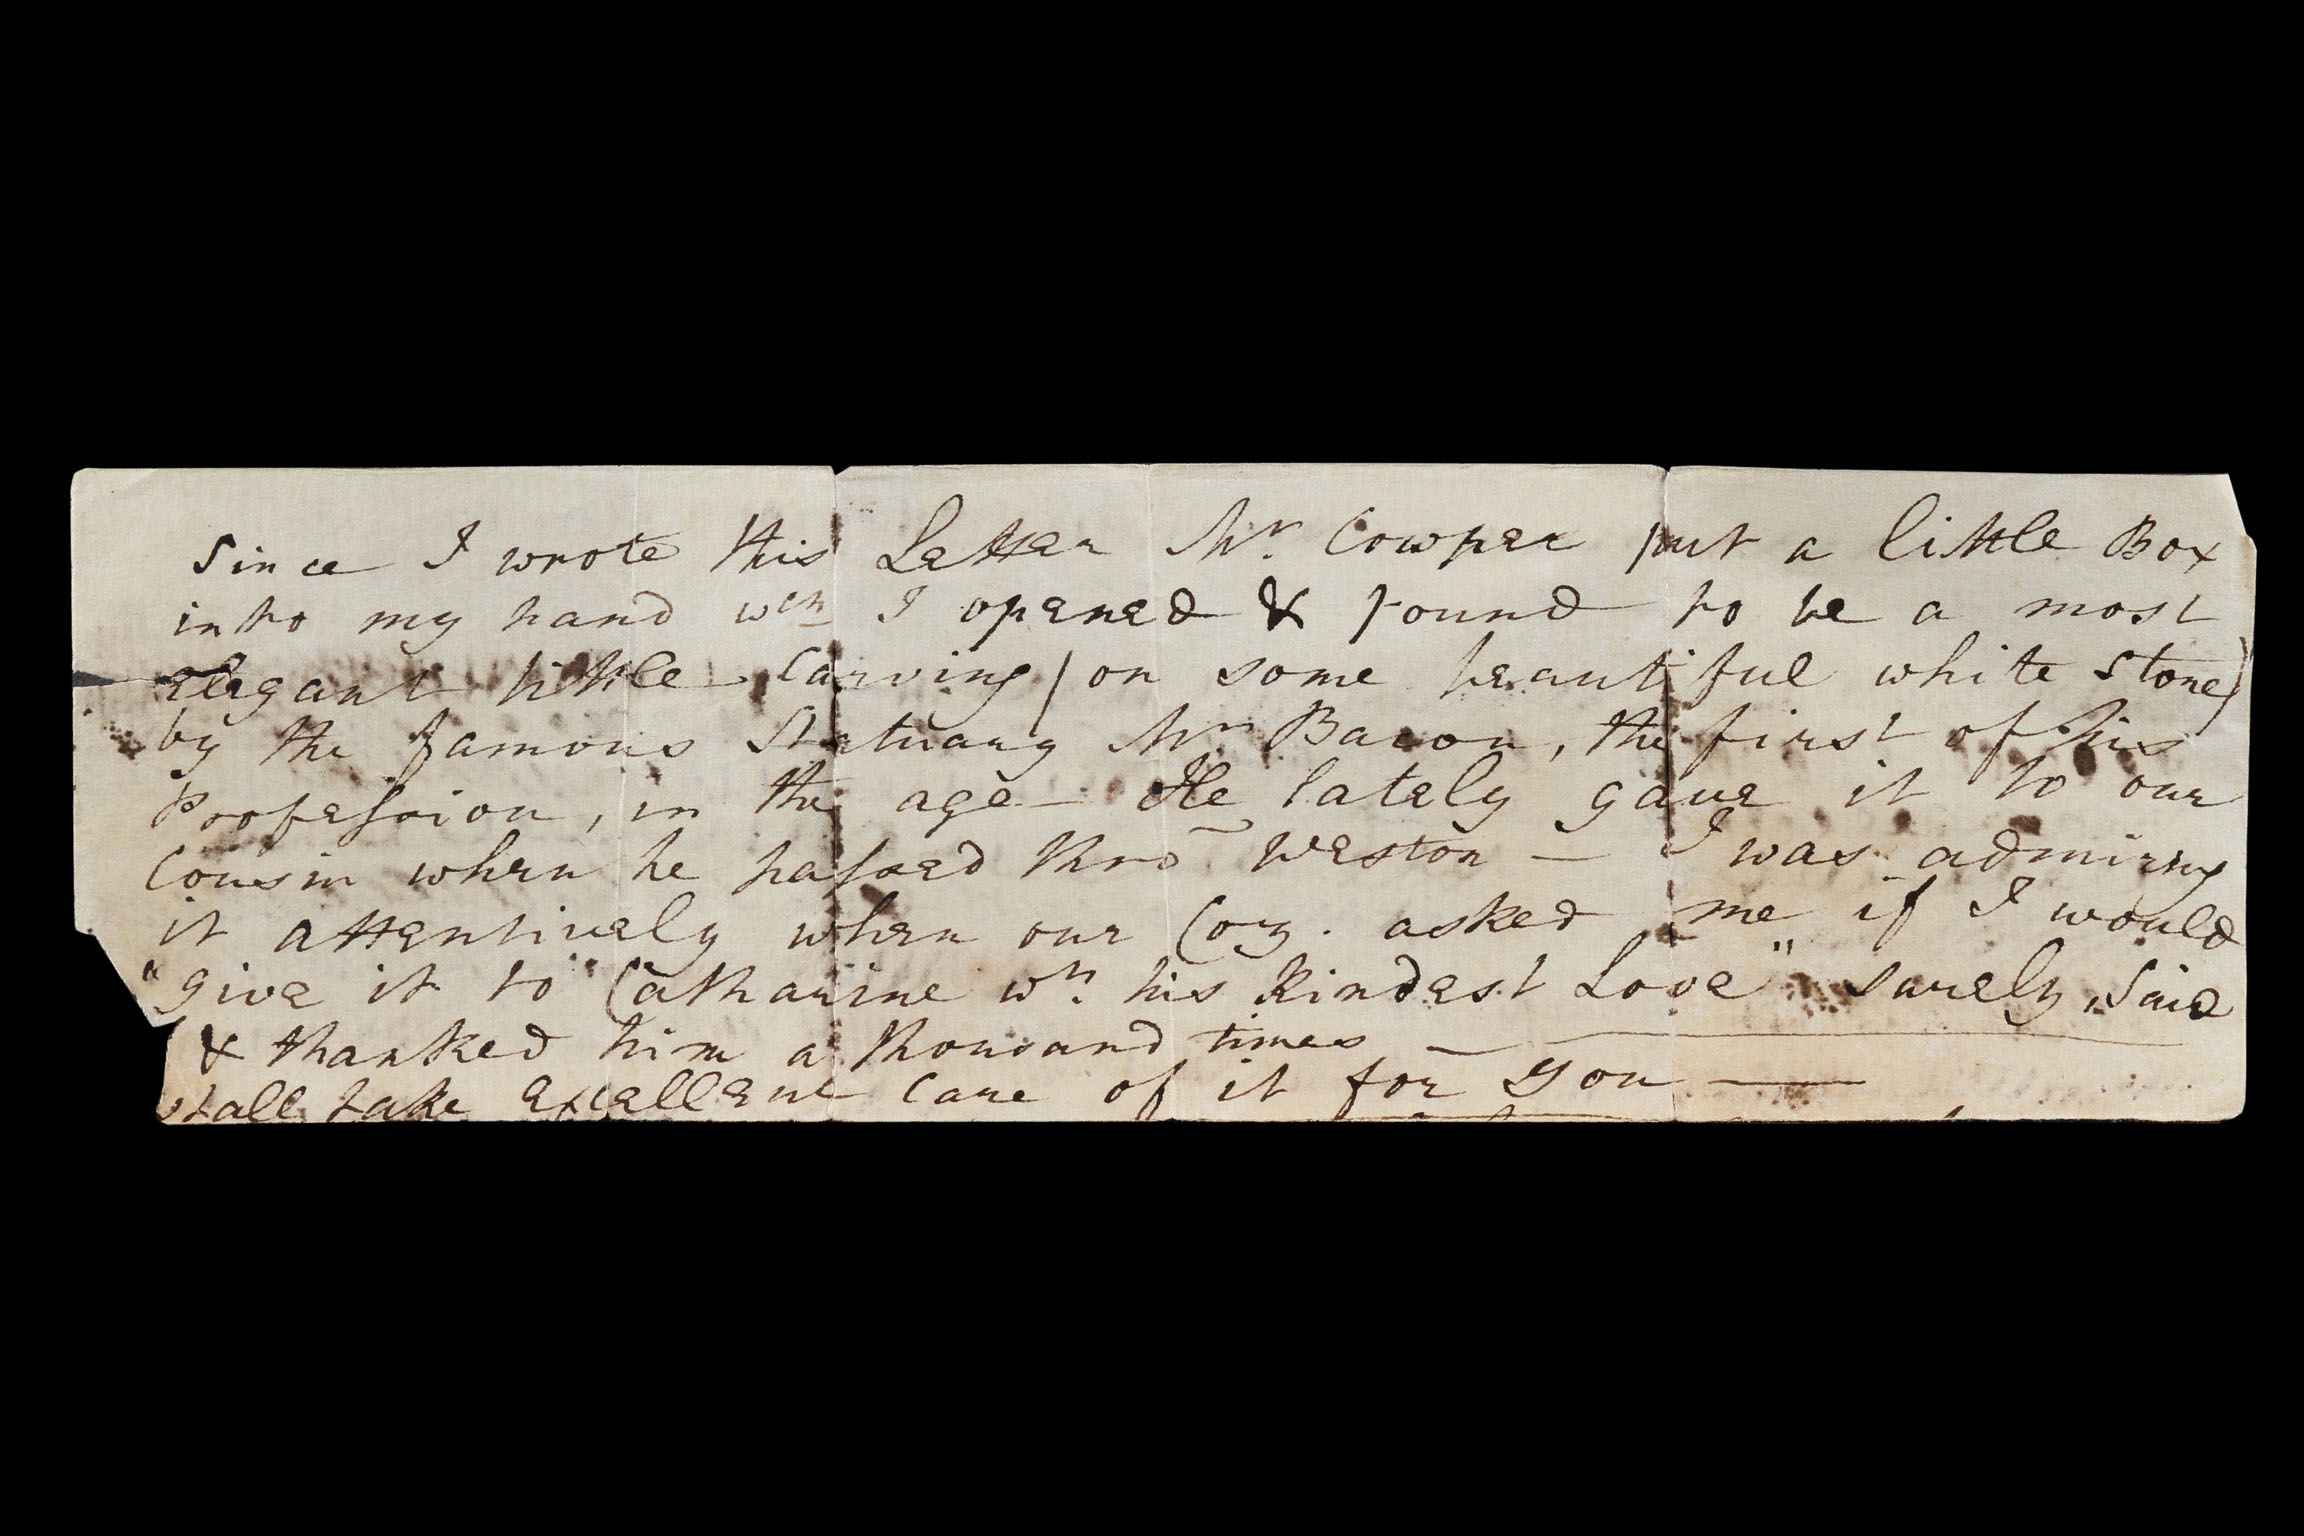 Since I wrote this Letter Mr. Cowper put a little Box
into my hand wch I opened & found to be a most
elegant little Carving (on some beautiful white Stone)
by the famous Statuary Mr Bacon, the first of his
Profession, in the age — He lately gave it to our
Cousin when he passed thro' Weston — I was admiring
it attentively when our Coz. asked me if I would
"give it to Catharine wth. his kindest Love" surely, Said
& thanked him a thousand times —
shall take excellent care of it for you —